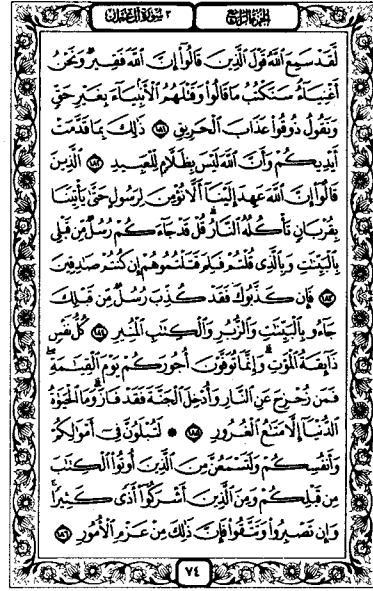 ٣ سورة آل عمران الجزء الرابع
لَّقَدْ سَمِعَ ٱللَّهُ قَوْلَ ٱلَّذِينَ قَالُوٓا۟ إِنَّ ٱللَّهَ فَقِيرٌ وَنَحْنُ
أَغْنِيَآءُ سَنَكْتُبُ مَا قَالُوا۟ وَقَتْلَهُمُ ٱلْأَنۢبِيَآءَ بِغَيْرِ حَقٍّ
وَنَقُولُ ذُوقُوا۟ عَذَابَ ٱلْحَرِيقِ ١٨١ ذَٰلِكَ بِمَا قَدَّمَتْ
أَيْدِيكُمْ وَأَنَّ ٱللَّهَ لَيْسَ بِظَلَّامٍ لِّلْعَبِيدِ ١٨٢ ٱلَّذِينَ
قَالُوٓا۟ إِنَّ ٱللَّهَ عَهِدَ إِلَيْنَآ أَلَّا نُؤْمِنَ لِرَسُولٍ حَتَّىٰ يَأْتِيَنَا
بِقُرْبَانٍ تَأْكُلُهُ ٱلنَّارُ قُلْ قَدْ جَآءَكُمْ رُسُلٌ مِّن قَبْلِى
بِٱلْبَيِّنَٰتِ وَبِٱلَّذِى قُلْتُمْ فَلِمَ قَتَلْتُمُوهُمْ إِن كُنتُمْ صَٰدِقِينَ
١٨٣ فَإِن كَذَّبُوكَ فَقَدْ كُذِّبَ رُسُلٌ مِّن قَبْلِكَ
جَآءُو بِٱلْبَيِّنَٰتِ وَٱلزُّبُرِ وَٱلْكِتَٰبِ ٱلْمُنِيرِ ١٨٤ كُلُّ نَفْسٍ
ذَآئِقَةُ ٱلْمَوْتِ وَإِنَّمَا تُوَفَّوْنَ أُجُورَكُمْ يَوْمَ ٱلْقِيَٰمَةِ
فَمَن زُحْزِحَ عَنِ ٱلنَّارِ وَأُدْخِلَ ٱلْجَنَّةَ فَقَدْ فَازَ وَمَا ٱلْحَيَوٰةُ
ٱلدُّنْيَآ إِلَّا مَتَٰعُ ٱلْغُرُورِ ١٨٥ ۞ لَتُبْلَوُنَّ فِىٓ أَمْوَٰلِكُمْ
وَأَنفُسِكُمْ وَلَتَسْمَعُنَّ مِنَ ٱلَّذِينَ أُوتُوا۟ ٱلْكِتَٰبَ
مِن قَبْلِكُمْ وَمِنَ ٱلَّذِينَ أَشْرَكُوٓا۟ أَذًى كَثِيرًا
وَإِن تَصْبِرُوا۟ وَتَتَّقُوا۟ فَإِنَّ ذَٰلِكَ مِنْ عَزْمِ ٱلْأُمُورِ ١٨٦
٧٤